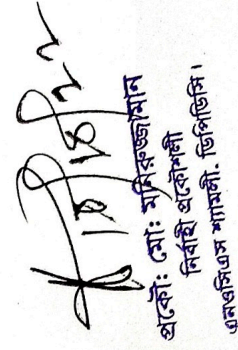 প্রকৌ: মো: মনিরুজ্জামান
নির্বাহী প্রকৌশলী
এনওসিএস শ্যামলী, ডিপিডিসি।